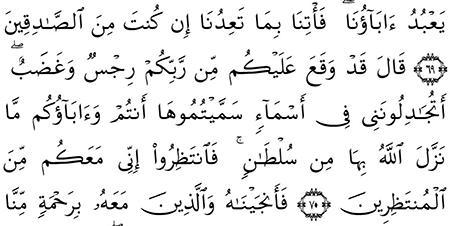 يَعْبُدُ ءَابَآؤُنَا ۖ فَأْتِنَا بِمَا تَعِدُنَا إِن كُنتَ مِنَ الصَّٰدِقِينَ
﴿٦٩﴾ قَالَ قَدْ وَقَعَ عَلَيْكُم مِّن رَّبِّكُمْ رِجْسٌ وَغَضَبٌ ۖ
أَتُجَٰدِلُونَنِى فِى أَسْمَآءٍ سَمَّيْتُمُوهَا أَنتُمْ وَءَابَآؤُكُم مَّا
نَزَّلَ اللَّهُ بِهَا مِن سُلْطَٰنٍ ۚ فَانتَظِرُوا۟ إِنِّى مَعَكُم مِّنَ
الْمُنتَظِرِينَ ﴿٧٠﴾ فَأَنجَيْنَٰهُ وَالَّذِينَ مَعَهُۥ بِرَحْمَةٍ مِّنَّا